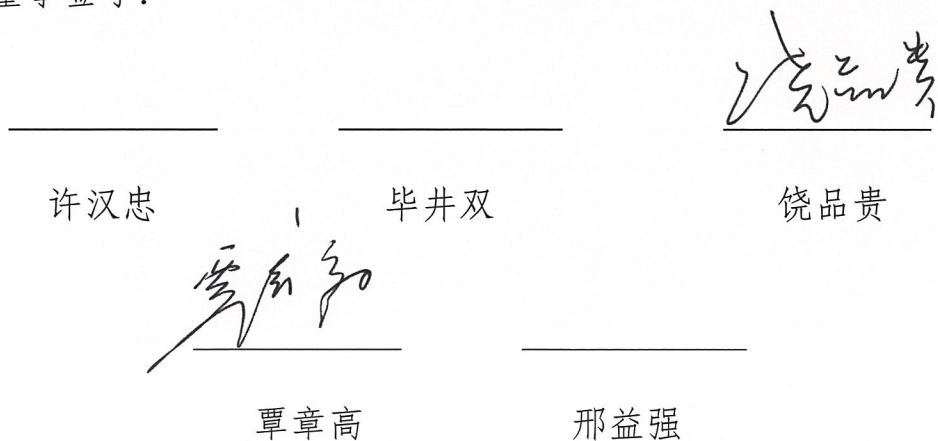 饶品贵
许汉忠 毕井双 饶品贵
覃章高 邢益强